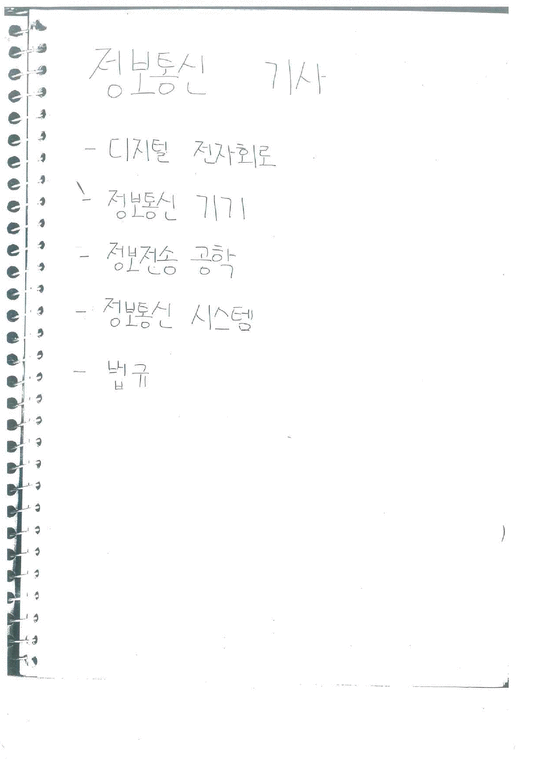 정보통신 기사
- 디지털 전자회로
- 정보통신 기기
- 정보전송 공학
- 정보통신 시스템
- 법규